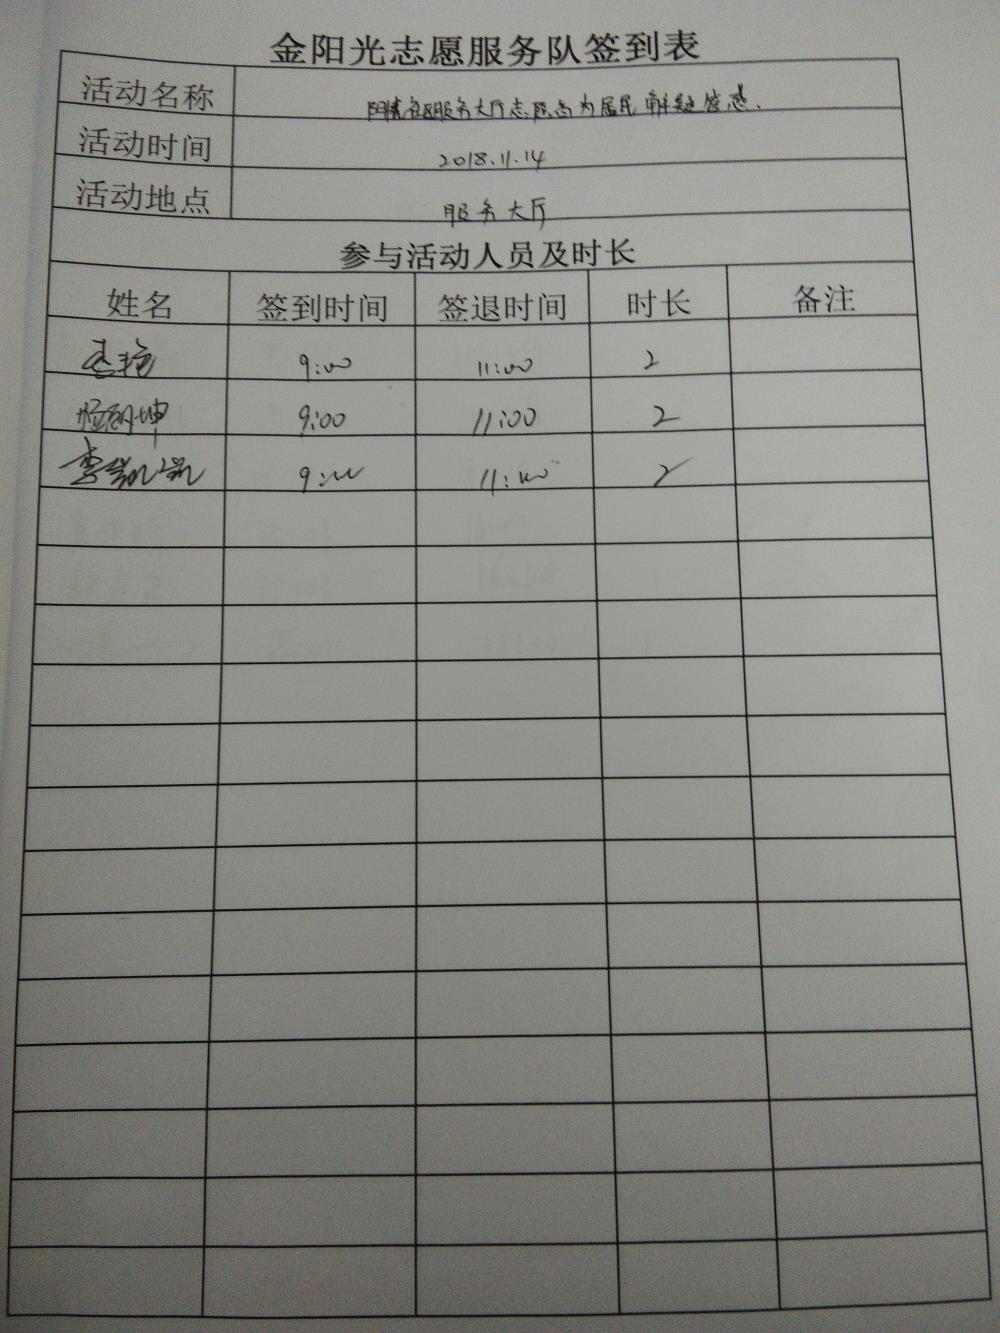 金阳光志愿服务队签到表
活动名称 社区服务大厅志愿者为居民解疑答惑.
活动时间 2018.11.14
活动地点 服务大厅
参与活动人员及时长
姓名 签到时间 签退时间 时长 备注
9:00 11:00 2
9:00 11:00 2
9:00 11:00 2